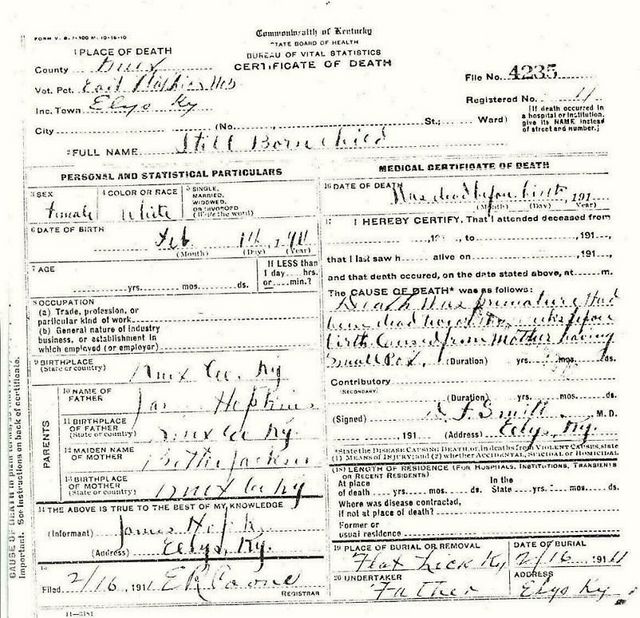 FORM V. S. 1-300 M. 10-16-10
Commonwealth of Kentucky
STATE BOARD OF HEALTH
BUREAU OF VITAL STATISTICS
CERTIFICATE OF DEATH
1 PLACE OF DEATH
County
Vot. Pct. East Hopkins
Inc. Town Elys Ky
File No. 4235
Registered No. 4
City (No. St.; Ward)
[If death occurred in
a hospital or institution,
give its NAME instead
of street and number.]
2 FULL NAME Still Born child
PERSONAL AND STATISTICAL PARTICULARS
3 SEX female
4 COLOR OR RACE White
5 SINGLE, MARRIED, WIDOWED, OR DIVORCED (Write the word)
6 DATE OF BIRTH Feb 1911
(Month) (Day) (Year)
7 AGE yrs. mos. ds.
If LESS than
1 day hrs.
or min.?
8 OCCUPATION
(a) Trade, profession, or
particular kind of work
(b) General nature of industry
business, or establishment in
which employed (or employer)
9 BIRTHPLACE
(State or country) Knox Co. Ky
PARENTS
10 NAME OF
FATHER Jas Hopkins
11 BIRTHPLACE
OF FATHER
(State or country) Knox Co Ky
12 MAIDEN NAME
OF MOTHER
13 BIRTHPLACE
OF MOTHER
(State or country) Knox Co Ky
14 THE ABOVE IS TRUE TO THE BEST OF MY KNOWLEDGE
(Informant) James
(Address) Elys, Ky.
15
Filed 2/16 1911
REGISTRAR
11-3181
MEDICAL CERTIFICATE OF DEATH
16 DATE OF DEATH Was dead before birth, 191
(Month) (Day) (Year)
17 I HEREBY CERTIFY, That I attended deceased from
, 191 , to , 191 ,
that I last saw h alive on , 191 ,
and that death occured, on the date stated above, at m.
The CAUSE OF DEATH* was as follows:
Death was premature Had
been dead before
birth caused from Mother having
Small Pox. (Duration) yrs. mos. ds.
Contributory
(SECONDARY)
(Duration) yrs. mos. ds.
(Signed) M. D.
191 (Address) Elys, Ky.
*State the DISEASE CAUSING DEATH, or, in deaths from VIOLENT CAUSES, state
(1) MEANS OF INJURY; and (2) whether ACCIDENTAL, SUICIDAL or HOMICIDAL
(18) LENGTH OF RESIDENCE (FOR HOSPITALS, INSTITUTIONS, TRANSIENTS
OR RECENT RESIDENTS)
At place In the
of death yrs. mos. ds. State yrs. mos. ds.
Where was disease contracted,
if not at place of death?
Former or
usual residence
19 PLACE OF BURIAL OR REMOVAL Flat Lick Ky
DATE OF BURIAL 2/16 1911
20 UNDERTAKER Father
ADDRESS Elys Ky
CAUSE OF DEATH in plain terms
Important. See instructions on back of certificate.